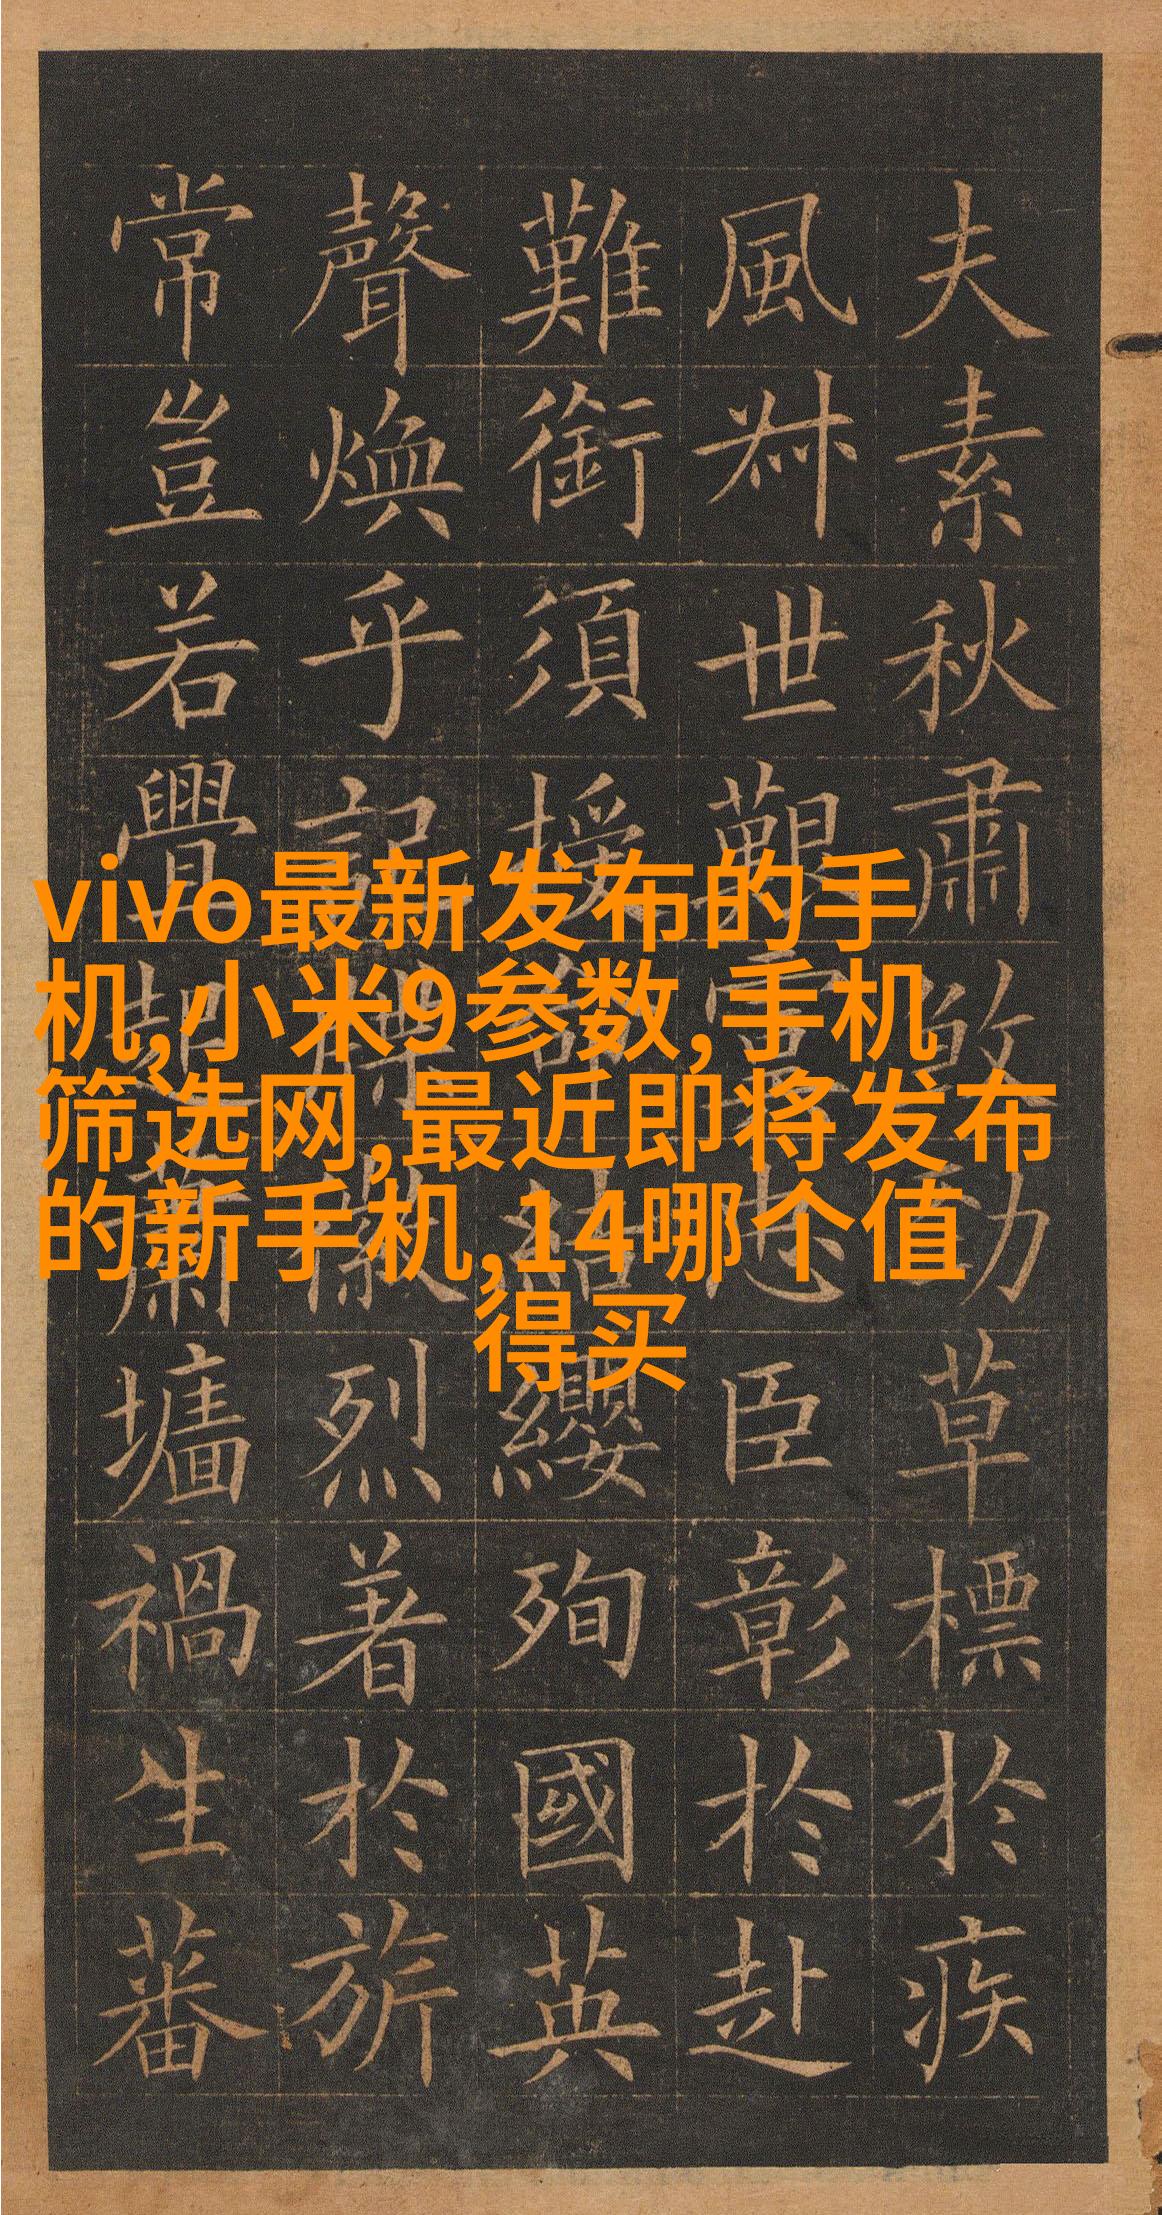 vivo最新发布的手
机,小米9参数,手机
筛选网,最近即将发布
的新手机,14哪个值
得买
夫素秋肅煞勁草標於疾
風叔世艱虞忠臣彰於赴
難銜須授命結纓殉國英
聲煥乎記牒徽烈著於旂
常豈若釁起蕭墻禍生蕃